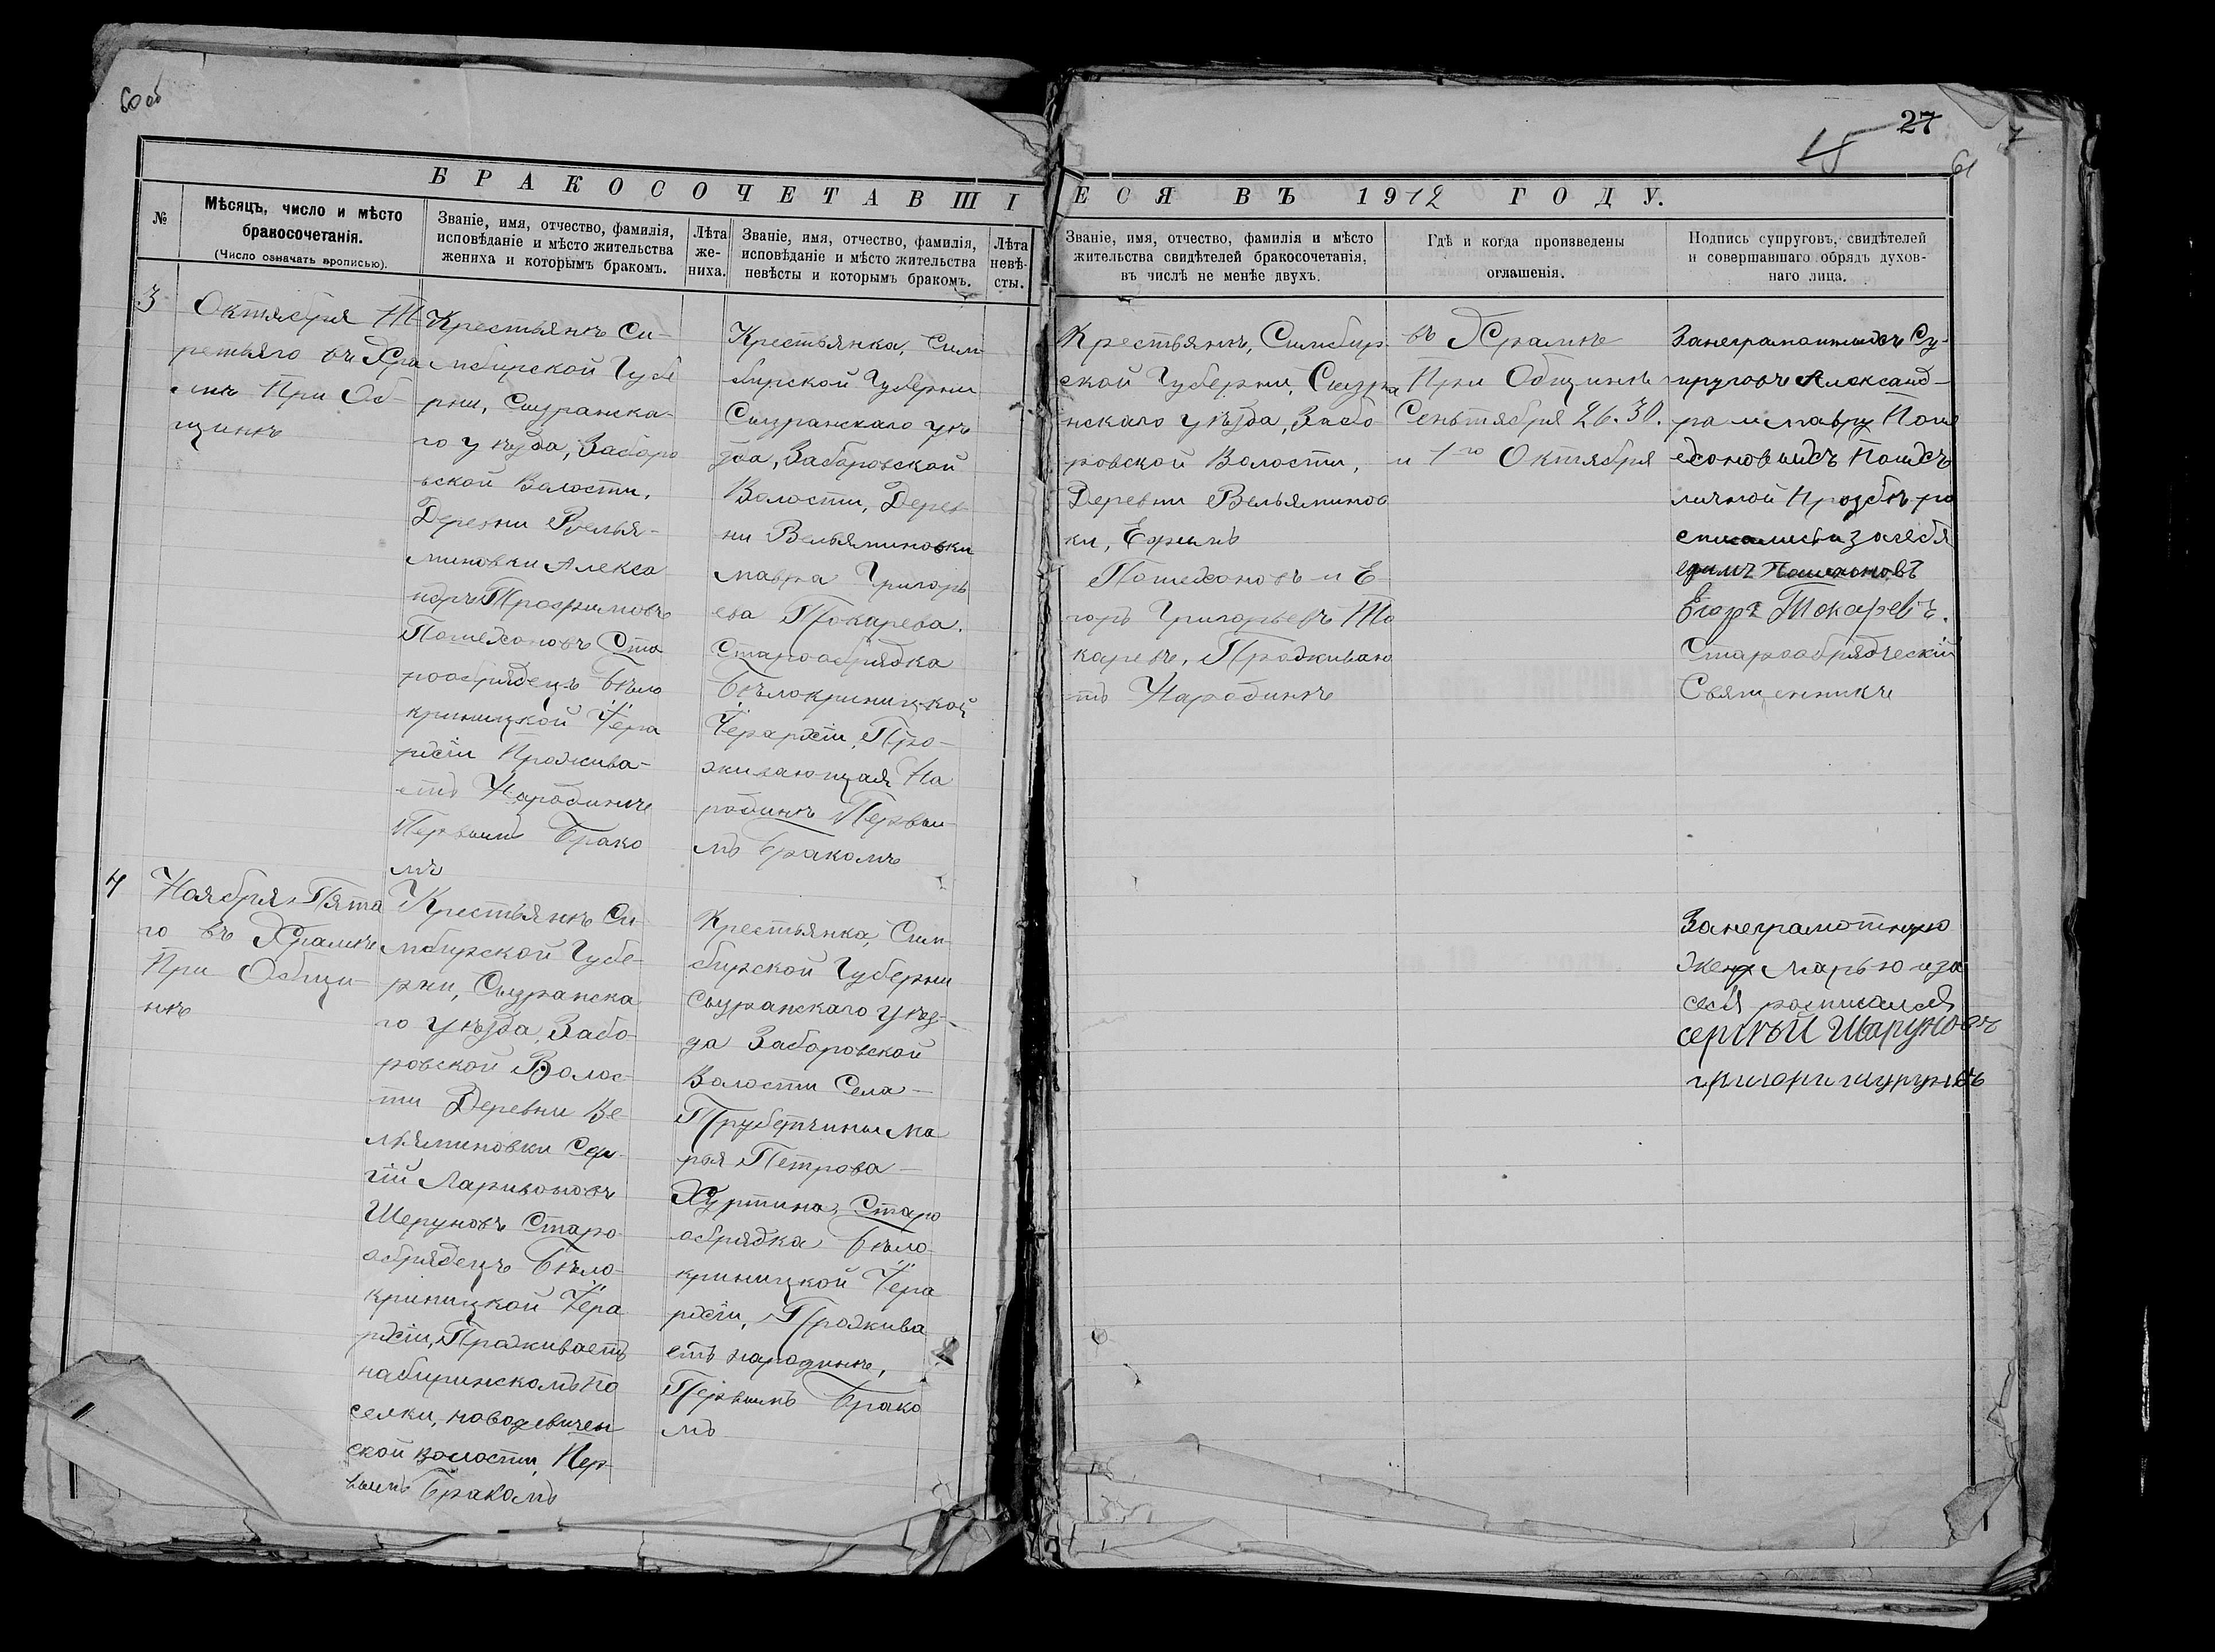 60 об
27
15
61
БРАКОСОЧЕТАВШІЕСЯ ВЪ 1912 ГОДУ.
№
Мѣсяцъ, число и мѣсто
бракосочетанія.
(Число означать прописью).
Званіе, имя, отчество, фамилія,
исповѣданіе и мѣсто жительства
жениха и которымъ бракомъ.
Лѣта
же-
ниха.
Званіе, имя, отчество, фамилія,
исповѣданіе и мѣсто жительства
невѣсты и которымъ бракомъ.
Лѣта
невѣ-
сты.
Званіе, имя, отчество, фамилія и мѣсто
жительства свидѣтелей бракосочетанія,
въ числѣ не менѣе двухъ.
Гдѣ и когда произведены
оглашенія.
Подпись супруговъ, свидѣтелей
и совершавшаго обрядъ духов-
наго лица.
3
Октября Т
ретьяго въ Хра
мѣ При Об-
щинѣ
Крестьянъ Си-
мбирской Губе
рни, Сызранска-
го уѣзда, Заборо
вской Волости,
Деревни Велья-
миновки Алекса
ндръ Трофимовъ
Пошехоновъ Ста
рообрядецъ Бѣло
криницкой Іера
рхіи Прожива-
етъ Народинѣ
Первымъ Брако
мъ
Крестьянка, Сим
бирской Губерни
Сызранскаго уѣ
зда, Заборовской
Волости, Дерев
ни Вельяминовки
мавра Григорь
ева Токарева.
Старообрядка
Бѣлокриницкой
Іерархіи, Про-
живающая На
родинѣ Первы
мъ Бракомъ
Крестьянъ, Симбир
ской Губерни, Сызра
нскаго уѣзда, Забо
ровской Волости,
Деревни Вельяминов
ки, Ефимъ
Пошехоновъ и Е
горъ Григорьевъ То
каревъ, Проживаю
тъ Народинѣ
въ Храмѣ
При Общинѣ
Сентября 26.30.
и 1го Октября
Занеграмотныхъ Су-
пруговъ Александ-
ра и мавру Поше
хоновыхъ Поихъ
личной Прозбѣ ра
списались и засебя
ефимъ Пошехоновъ
Егоръ Токаревъ.
Старообрядческій
Священникъ
4
Ноября Пята
го въ Храмѣ
При Общи-
нѣ
Крестьянъ Си
мбирской Губе-
рни, Сызранска
го уѣзда, Забо-
ровской Волос-
ти Деревни Ве-
льяминовки Сер
гій Ларивоновъ
Шеруновъ Старо
обрядецъ Бѣло-
криницкой Іера
рхіи, Проживаетъ
набиринскомъ По
селки, новодевичен
ской волости, Пер
вымъ Бракомъ
Крестьянка, Сим-
бирской Губерни
Сызранскаго уѣз-
да Заборовской
Волости Села-
Трубетчины Ма
рья Петрова-
Хуртина, Старо
обрядка Бѣло-
криницкой Іера
рхіи, Прожива
етъ народинѣ,
Первымъ Брако
мъ
Занеграмотную
жену Марью иза
себя росписался
сергѣй Шаруновъ
григори шурунов